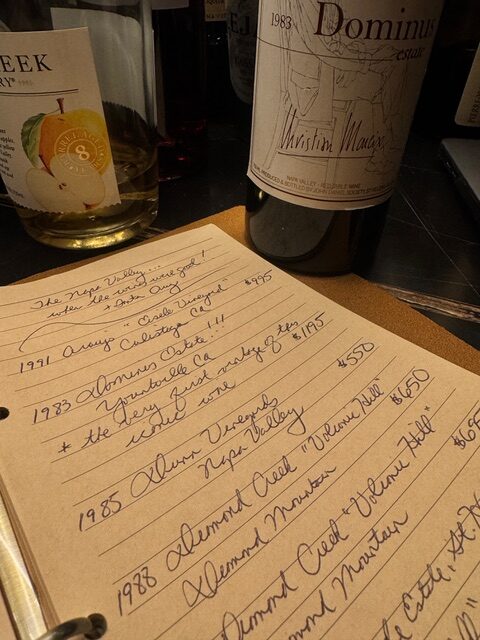 EEK
RY
8
E.J.
1983 Dominus
estate
Christian Moueix
NAPA VALLEY - RED TABLE WINE
PRODUCED & BOTTLED BY JOHN DANIEL SOCIETY
The Napa Valley...
when the wines were good!
1991 Araujo "Eisele Vineyard" $995
Calistoga Ca
1983 Dominus Estate!!!
Yountville Ca
* the very first vintage of this $1195
iconic wine
1985 Dunn Vineyards $550
Napa Valley
1988 Diamond Creek "Volcanic Hill" $650
Diamond Mountain
Diamond Creek "Volcanic Hill" $695
Diamond Mountain
Estate, St. H